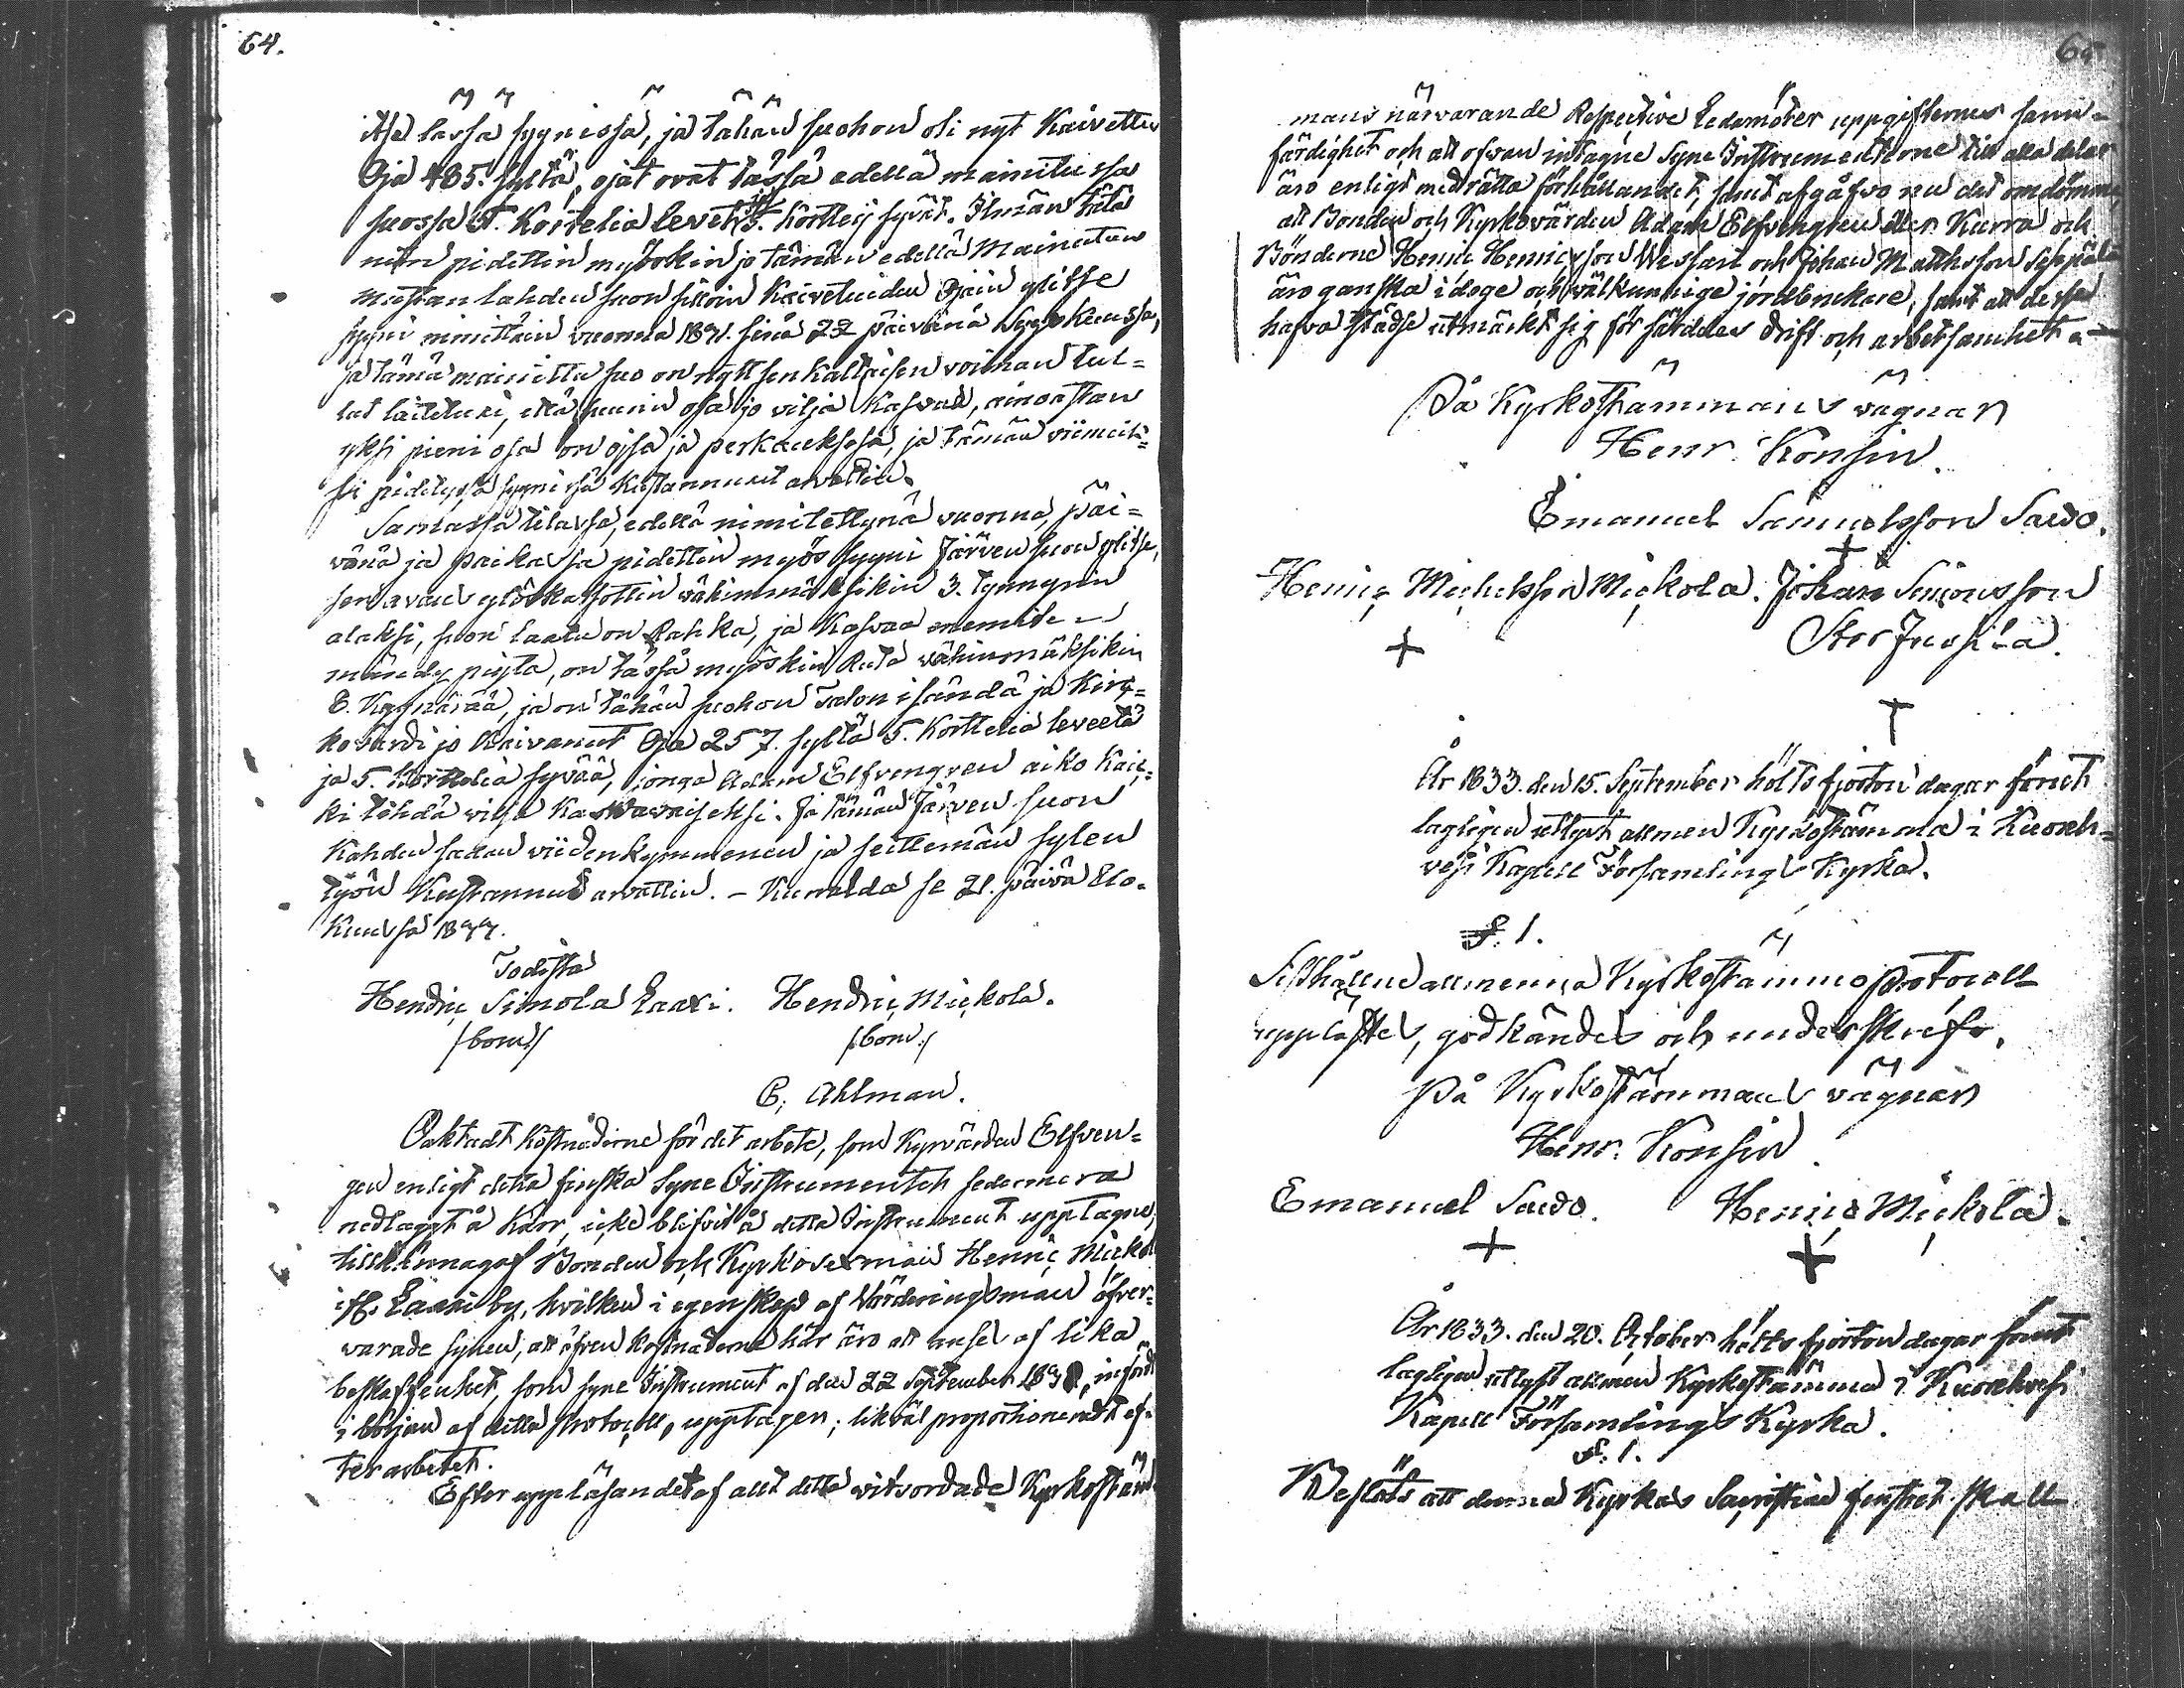 64.
itse tässä syynissä, ja tähän suohon oli nyt Kaivettu
Oja 485. syltä, ojat ovat tässä edellä mainitussa
suossa 5. Korttelia levet ja 5. Kortteli syvät. Ilman tätä
niin pidettin myöskin jo tämän edellä Mainitun
lahden suon silloin Kaivetuiden Ojain ylitse
syyni nimittäin vuonna 1831. sinä 22 päivänä Syys Kuussa,
ja tämä mainittu suo on nytt senkaltaisen voiman tul-
lut laitetuxi, että suurin osa jo vilja Kasvaa, ainoastan
yksi pieni osa on ojsa ja perkauksesa, ja tämän viimeis-
si pidetyssä syynissä Kustannuxet arvattiin.
Samassa tilassa, edellä nimitettynä vuonna, päi-
vänä ja paikassa pidettin myös syyni Järven suon ylitse,
sen avaus ylöskatsottin vähimmäksikin 3. tynnyrin
alaksi, suon laatu on Rahka, ja Kasvaa enemite
mändy puita, on tässä myöskin Ruta vähimmäksikin
6. Kyynärää, ja on tähän suohon Talon isändä ja Kirc-
kovärdi jo Kaivanut Oja 257. syltä 5. Korttelia leveetä
ja 5. Korttelia syvää, jonga Adam Elfvengren aiko Kaic-
ki tehdä vilja Kaswavaiseksi. Ja tämän Järven suon
Kahden sadan viidenkymmenen ja seittemän sylen
työn Kustannus arvattiin. – Kurralda se 21. päivä Elo-
Kuussa 1833.
Todista
Hendric Simola Laaxi. Hendric Mickola.
/bom./ /bom./
C. Ahlman.
Oaktadt Kostnaderne för det arbete, som Kyrvärden Elfven-
gren enligt detta finska Syne Instrumentet sedermera
nedlaggt å Kärr, icke blifvit å detta Instrument upptagne,
tillkännagaf Bonden och Kyrkosexman Henric Mickola
if. Laaxi by, hvilken i egenskap af Värderingsman öfver-
varade synen, att äfven kostnaderne här äro att anse af lika
beskaffenhet, som syne Instrument af den 22 September 1831, införd
i början af detta Protocoll, upptagen; likväl proportioneradt ef-
ter arbetet.
Efter uppläsandet af allt detta vitsordade Kyrkostäm-
65
mans närvarande Respective Ledamöter uppgifternes sann-
färdighet och att ofvan intagne Syne Instrumenterne till alla delar
äro enligt med rätta förhållandet, samt afgåfvo nu det omdömme,
att Bonden och Kyrkovärden Adam Elfvengren eller Kurra och
Bönderne Henric Henricsson Wessari och Johan Matthsson Seppälä
äro ganska idoge och välkunnige jordbrukare, samt att desse
hafva städse utmärkt sig för särdeles drift och arbetsamhet.
På Kyrkostämmans vägnar
Henr. Konsin.
Emanuel Samuelsson Savo.
Henric Michelsson Mickola. Johan Simonsson
Stor Jussila.
År 1833. den 15. September hölts fjorton dagar förut
lagligen utlyst allmen Kyrkostämma i Kuoreh-
vesi Kapell Församlings Kyrka.
§. 1.
Sisthållne allmenna Kyrkostämmoprotocoll
upplästes, godkändes och underskrefs.
På Kyrkostämmans vägnar
Henr. Konsin
Emanuel Savo. Henric Mickola.
År 1833. den 20. October hölts fjorton dagar förut
lagligen utlyst allmen Kyrkostämma i Kuorehvesi
Kapell Församlings Kyrka.
§. 1.
Beslöts att denna Kyrkas Sacristie fenster skall